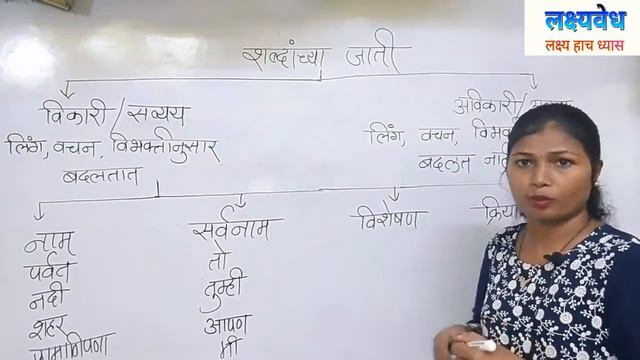 लक्ष्यवेध
लक्ष्य हाच ध्यास
शब्दांच्या जाती
विकारी / सव्यय
लिंग, वचन, विभक्तीनुसार
बदलतात
अविकारी /
लिंग, वचन,
बदलत
नाम
पर्वत
नदी
शहर
सर्वनाम
तो
तुम्ही
आपण
मी
विशेषण